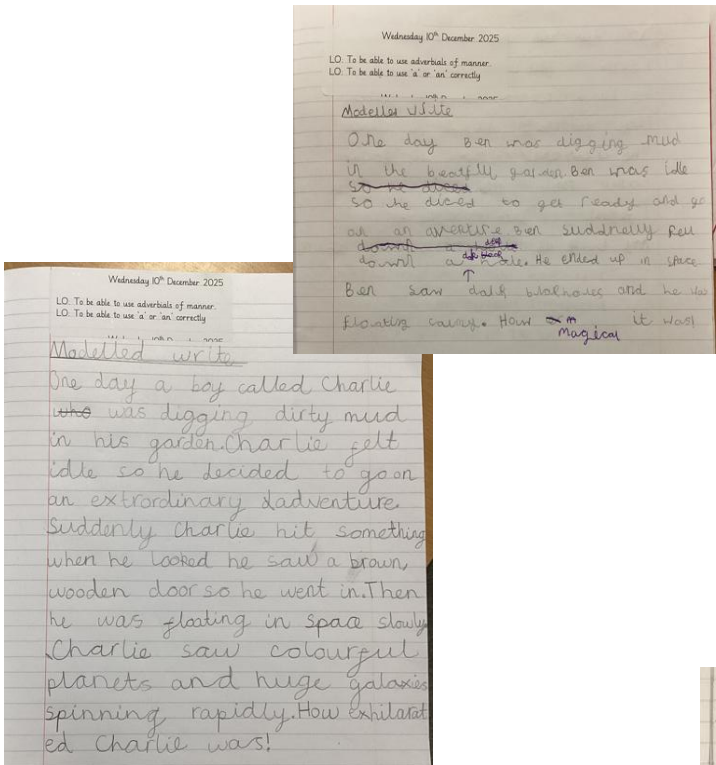 Wednesday 10th December 2025
LO. To be able to use adverbials of manner.
LO. To be able to use 'a' or 'an' correctly
Modelled write
One day Ben was digging mud
in the garden. Ben was idle
so he diced
so he diced to get ready and go
on an Ben suddnelly
down a
down a hole. He ended up in space
Ben saw and he
floating How it was!
magical
Wednesday 10th December 2025
LO. To be able to use adverbials of manner.
LO. To be able to use 'a' or 'an' correctly
Modelled write
One day a boy called Charlie
who was digging dirty mud
in his garden. Charlie felt
idle so he decided to go on
an extrordinary adventure
Suddenly Charlie hit something
when he looked he saw a brown,
wooden door so he went in. Then
he was floating in space slowly
Charlie saw colourful
planets and huge galaxies
spinning rapidly. How exhilarat
ed Charlie was!